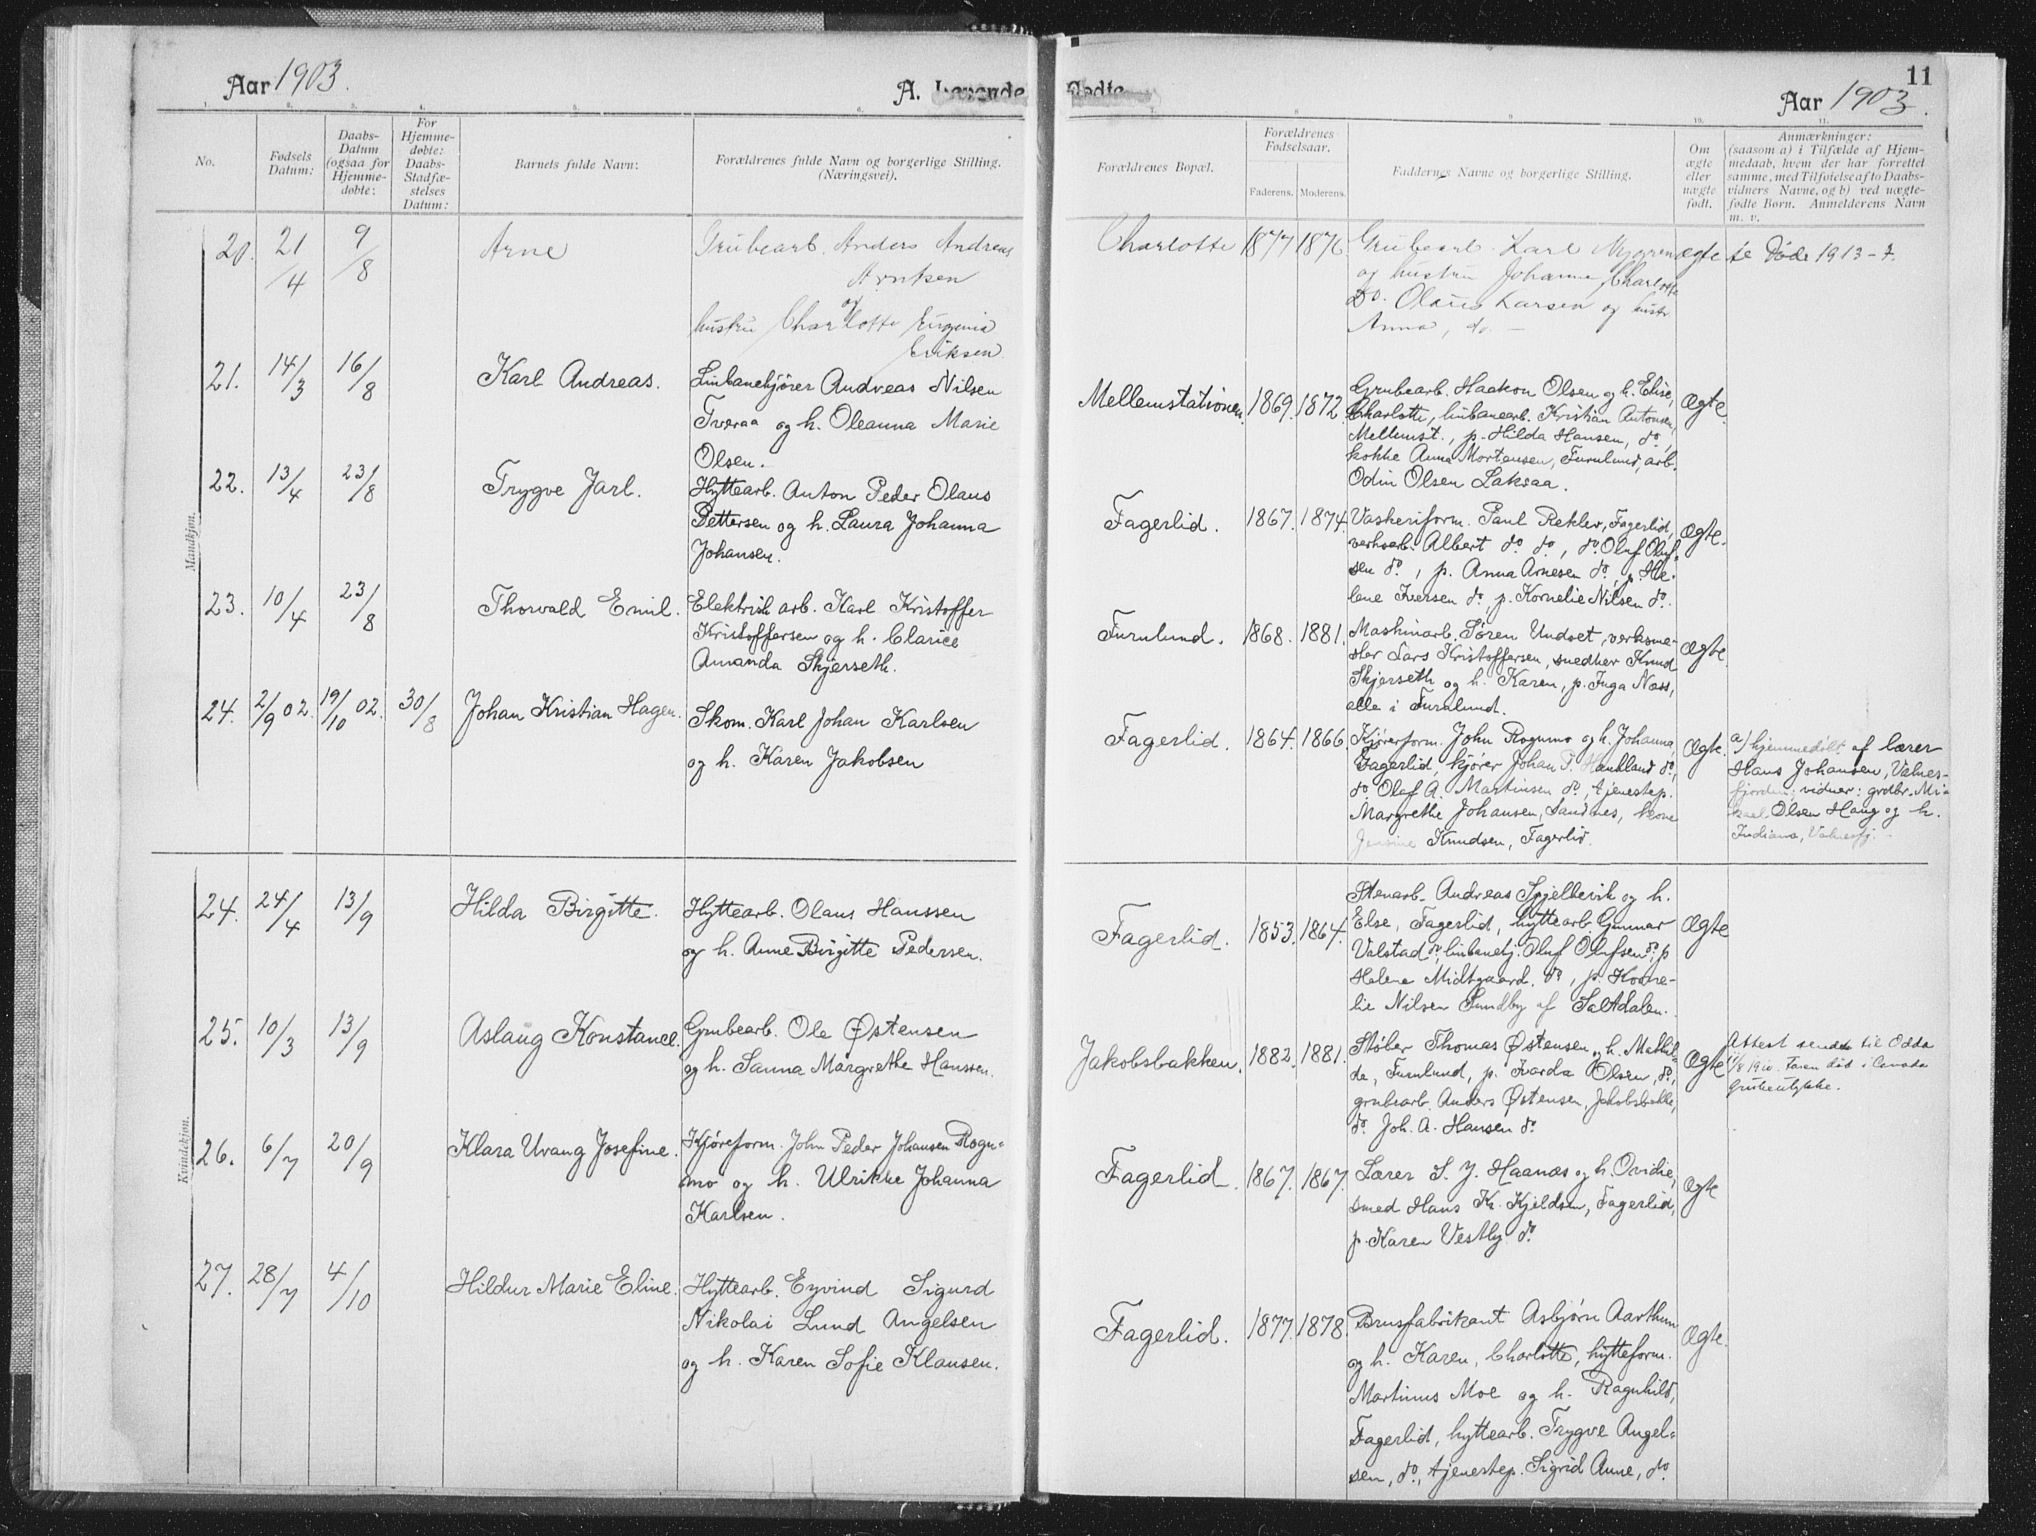 Aar 1903.
A. Levende
Fødte
Aar 1903.
11
1. 2. 3. 4. 5. 6. 7. 8. 9. 10. 11.
No.
Fødsels Datum:
Daabs-
Datum
(ogsaa for
Hjemme-
døbte:
For
Hjemme-
døbte:
Daabs-
Stadfæ-
stelses
Datum:
Barnets fulde Navn:
Forældrenes fulde Navn og borgerlige Stilling.
(Næringsvei).
Forældrenes Bopæl.
Forældrenes
Fødselsaar.
Faderens. Moderens.
Faddernes Navne og borgerlige Stilling.
Om
ægte
eller
uægte
født.
Anmærkninger:
(saasom a) i Tilfælde af Hjem-
medaab, hvem der har forrettet
samme, med Tilføielse af to Daabs-
vidners Navne, og b) ved uægte-
fødte Børn. Anmelderens Navn
m. v.
Mandkjøn.
20. 21/4 9/8 Arne
Grubearb. Anders Andreas
Arntsen
og
hustru Charlotte Eugenia
Eriksen
Charlotte 1877 1876.
Grubearb. Karl Nygren
og hustru Johanne, Charlotte
Do. Olaus Larsen og hustr
Anna, do. –
ægte
se Døde 1913 - 7.
21. 14/3 16/8 Karl Andreas.
Linbanekjører Andreas Nilsen
Tveraa og h. Oleanna Marie
Olsen.
Mellemstationen. 1869. 1872.
Grubearb. Haakon Olsen og h. Elise,
Charlotte, linbanearb. Kristian Antonsen,
Mellemst., p. Hilda Hansen, do,
kokke Anna Mortensen, Furulund, arb.
Odin Olsen Laksaa.
Ægte.
22. 13/4 23/8 Trygve Jarl.
Hyttearb. Anton Peder Olaus
Pettersen og h. Laura Johanna
Johansen.
Fagerlid. 1867. 1874.
Vaskeriform. Paul Rekler, Fagerlid,
verksarb. Albert do do, do Oluf Oluf-
sen do, p. Anna Arnesen do, p. He-
lene Iversen do, p. Kornelie Nilsen do.
Ægte.
23. 10/4 23/8 Thorvald Emil.
Elektrisk arb. Karl Kristoffer
Kristoffersen og h. Clarice
Amanda Skjerseth.
Furulund. 1868. 1881.
Maskinarb. Søren Undset, verksme-
ster Lars Kristoffersen, smedher Knud
Skjerseth og h. Karen, p. Inga Næss,
alle i Furulund.
Ægte.
24. 2/9 02. 19/10 02. 30/8 Johan Kristian Hagen.
Skom. Karl Johan Karlsen
og h. Karen Jakobsen
Fagerlid. 1864. 1866
Kjørerform. John Rognmo og h. Johanna,
Fagerlid, kjører Johan P. Haukland do,
do Olaf A. Martinsen do, tjenestep.
Margrethe Johansen, Sandnes, kone
Jensine Knudsen, Fagerlid.
Ægte.
a/ hjemmedøbt af lærer
Hans Johansen, Valnes-
fjorden; vidner: grdbr. Mi-
kael Olsen Haug og h.
Indiana, Valnesfj.
Kvindekjøn.
24. 24/4 13/9 Hilda Birgitte.
Hyttearb. Olaus Hanssen
og h. Anne Birgitte Pedersen.
Fagerlid. 1853. 1864.
Stenarb. Andreas Spjelkevik og h.
Else, Fagerlid, hyttearb. Gunnar
Valstad do, linbanekj. Oluf Olufsen do, p.
Helene Midtgaard. do, p. Korne-
lie Nilsen Sundby af Saltdalen.
Ægte
25. 10/3 13/9 Aslaug Konstance.
Grubearb. Ole Østensen
og h. Sanna Margrethe Hanssen.
Jakobsbakken. 1882. 1881.
Støber Thomas Østensen og h. Mathil-
de, Furulund, p. Harda Olsen, do,
grubearb. Anders Østensen, Jakobsbakke,
do Joh. A. Hansen do.
Ægte
Attest sendt til Odda
11/8 1910. Faren død i Canada
Grubeulykke.
26. 6/7 20/9 Klara Uvang Josefine.
Kjøreform. John Peder Johansen Rogn-
mo og h. Ulrikke Johanna
Karlsen.
Fagerlid. 1867. 1867.
Lærer S. J. Haanæs og h. Ovidie,
smed Hans Kr. Kjeldsen, Fagerlid,
p. Karen Vestby do.
Ægte
27. 28/7 4/10 Hildur Marie Eline.
Hyttearb. Eyvind Sigurd
Nikolai Lund Angelsen
og h. Karen Sofie Klausen.
Fagerlid. 1877. 1878.
Brusfabrikant Asbjørn Aarthun
og h. Karen, Charlotte, hytteform.
Martinus Moe og h. Ragnhild,
Fagerlid, hyttearb. Trygve Angel-
sen, do., tjenestep. Sigrid Anne, do.
Ægte.